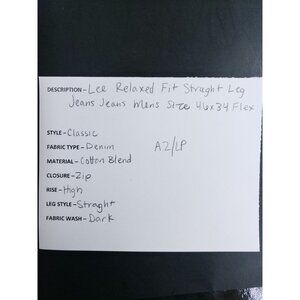 DESCRIPTION - Lee Relaxed Fit Straght Leg
Jeans Jeans Mens Size 46x34 Flex
STYLE - Classic
FABRIC TYPE - Denim
A2/LP
MATERIAL - Cotton Blend
CLOSURE - Zip
RISE - High
LEG STYLE - Straght
FABRIC WASH - Dark